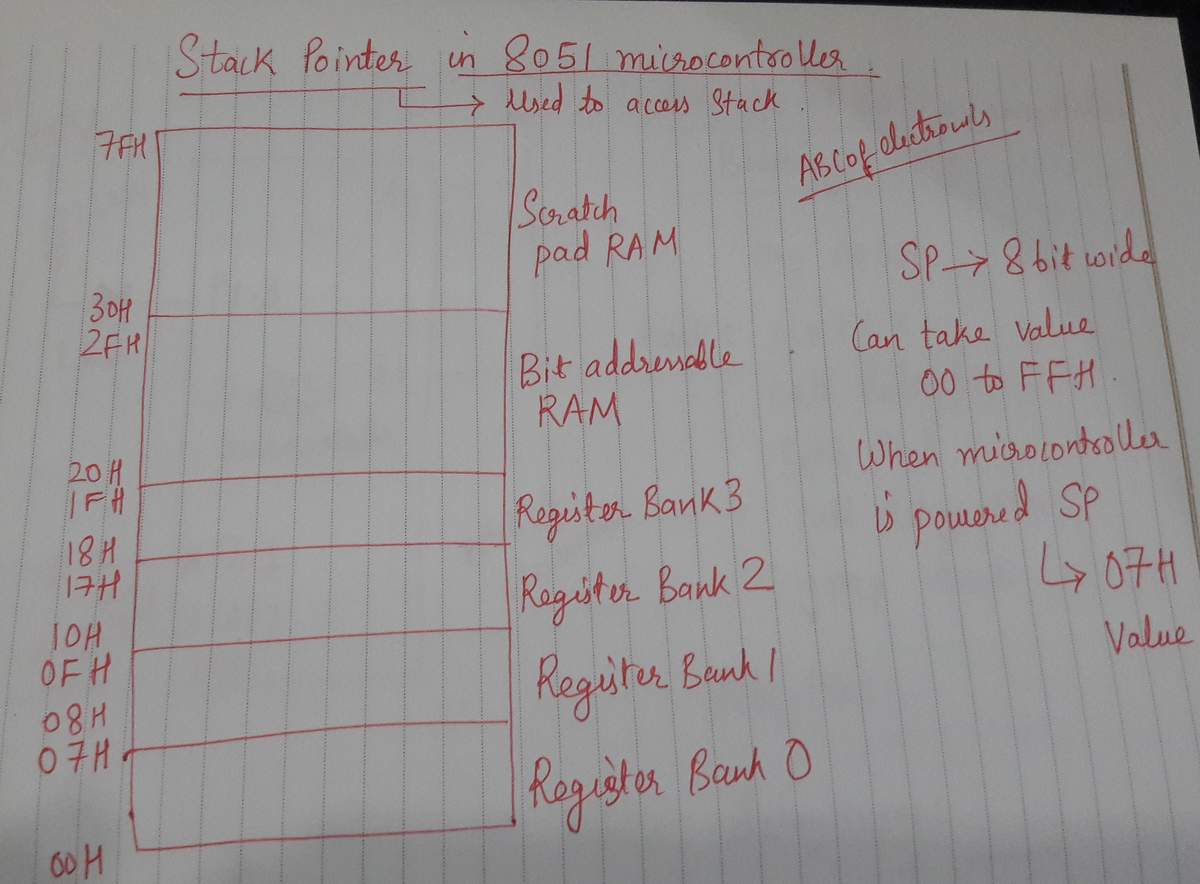 Stack Pointer in 8051 microcontroller.
→ Used to access Stack.
ABC of electronics
7FH
Scratch
pad RAM
30H
2FH
Bit addressable
RAM
20H
1FH
Register Bank 3
18H
17H
Register Bank 2
10H
0FH
Register Bank 1
08H
07H
Register Bank 0
00H
SP → 8 bit wide
Can take value
00 to FFH.
When microcontroller
is powered SP
↳ 07H
Value